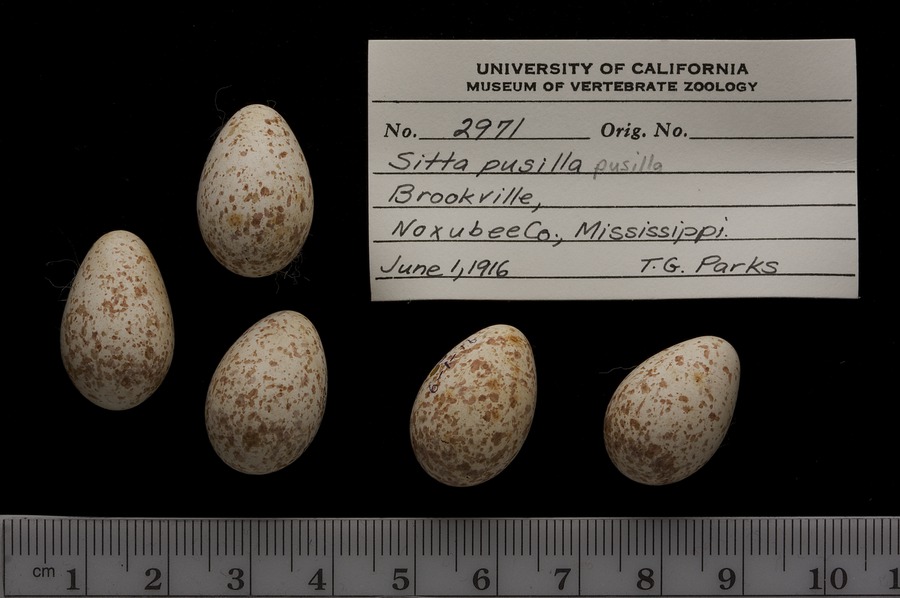 UNIVERSITY OF CALIFORNIA
MUSEUM OF VERTEBRATE ZOOLOGY
No. 2971 Orig. No.
Sitta pusilla pusilla
Brookville,
Noxubee Co., Mississippi.
June 1, 1916 T.G. Parks
cm 1 2 3 4 5 6 7 8 9 10 1